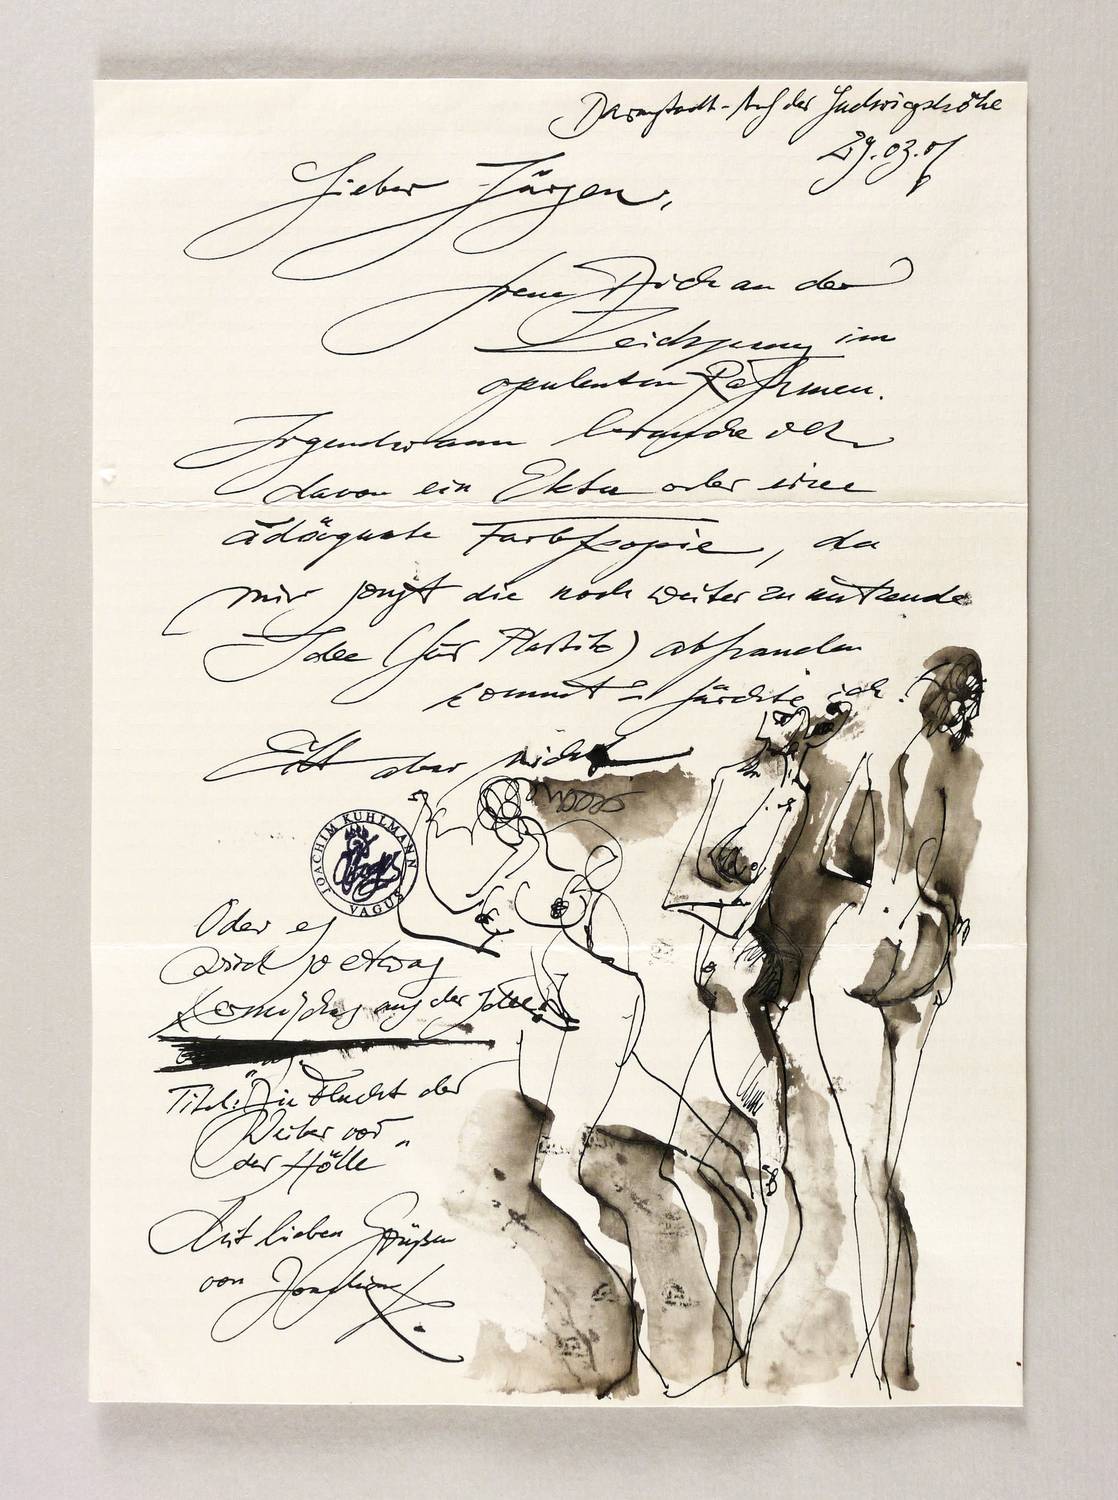 Darmstadt - Auf der Ludwigshöhe
29.03.01
Lieber Jürgen,
freue Dich an der
Zeichnung im
opulenten Rahmen.
Irgendwann brauche ich
davon ein Ekta oder eine
adäquate Farbkopie, da
mir sonst die noch weiter zu nutzende
Idee (für Plastik) abhanden
kommt - fürchte ich!
Eilt aber nicht
JOACHIM KUHLMANN
VAGUS
Oder es
wird so etwas
Komisches aus der Idee:
Titel: "Die Flucht der
Weiber vor
der Hölle"
Mit lieben Grüßen
von Joachim